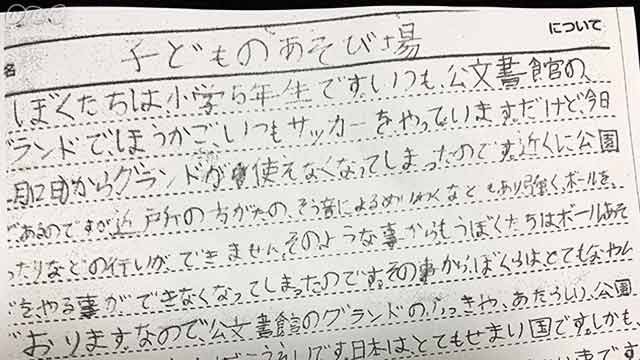 NHK
名 子どものあそび場 について
しぼくたちは小学5年生です。いつも、公文書館の、
グランドで、ほうかご、いつもサッカーをやっています。だけど、今日
からグランドが使えなくなってしまったのです。近くに公園
があるのですが近 戸斤の方がたの、そう音によるめいわくなどもあり強く、ボールを、
ったりなどの行いができません。そのような事からもうぼくたちはボールあそ
びを、やる事ができなくなってしまったのです。その事から、ぼくらはとてもなやん
でおります。なので、公文書館のグランドのふっきや、あたらしい、公園
です。日本は、とてもせまい国です。しかも、
です